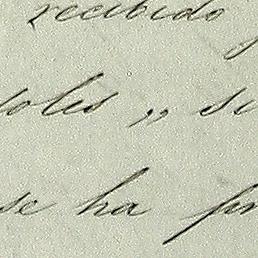 recibido
soles " su
se ha